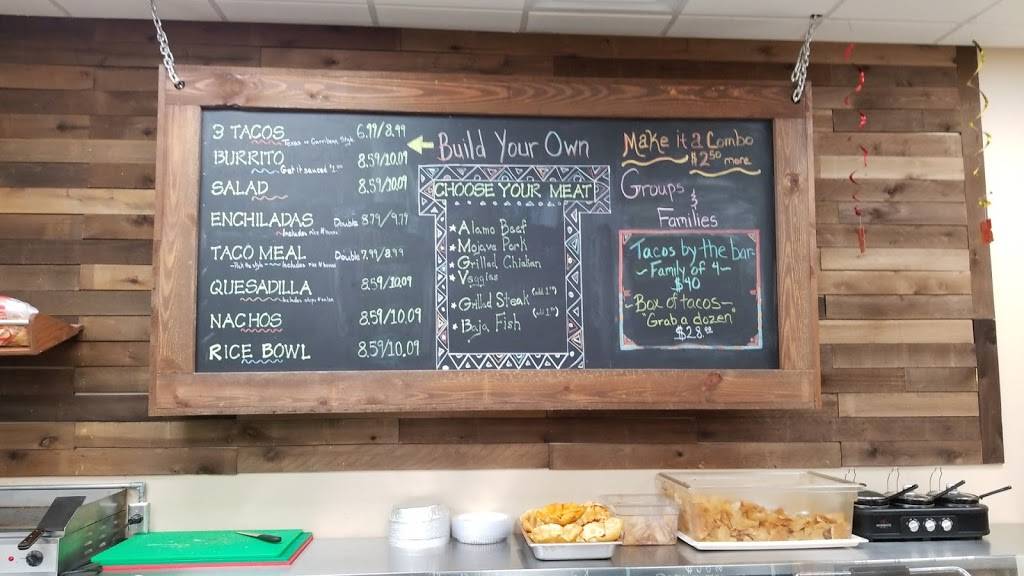 3 TACOS 6.99/8.99
Texas or Carribean Style
BURRITO 8.59/10.09
Get it sauced
SALAD 8.59/10.09
ENCHILADAS Double 8.79/9.79
Includes rice
TACO MEAL Double 7.99/8.99
Includes rice
QUESADILLA 8.59/10.09
Includes
NACHOS 8.59/10.09
RICE BOWL 8.59/10.09
Build Your Own
CHOOSE YOUR MEAT
Alamo Beef
Mojave Pork
Grilled Chicken
Veggies
Grilled Steak
Baja Fish
Make it a Combo
$2.50 more
Groups
&
Families
Tacos by the bar
~Family of 4~
$40
~Box of tacos~
"Grab a dozen"
$28.00